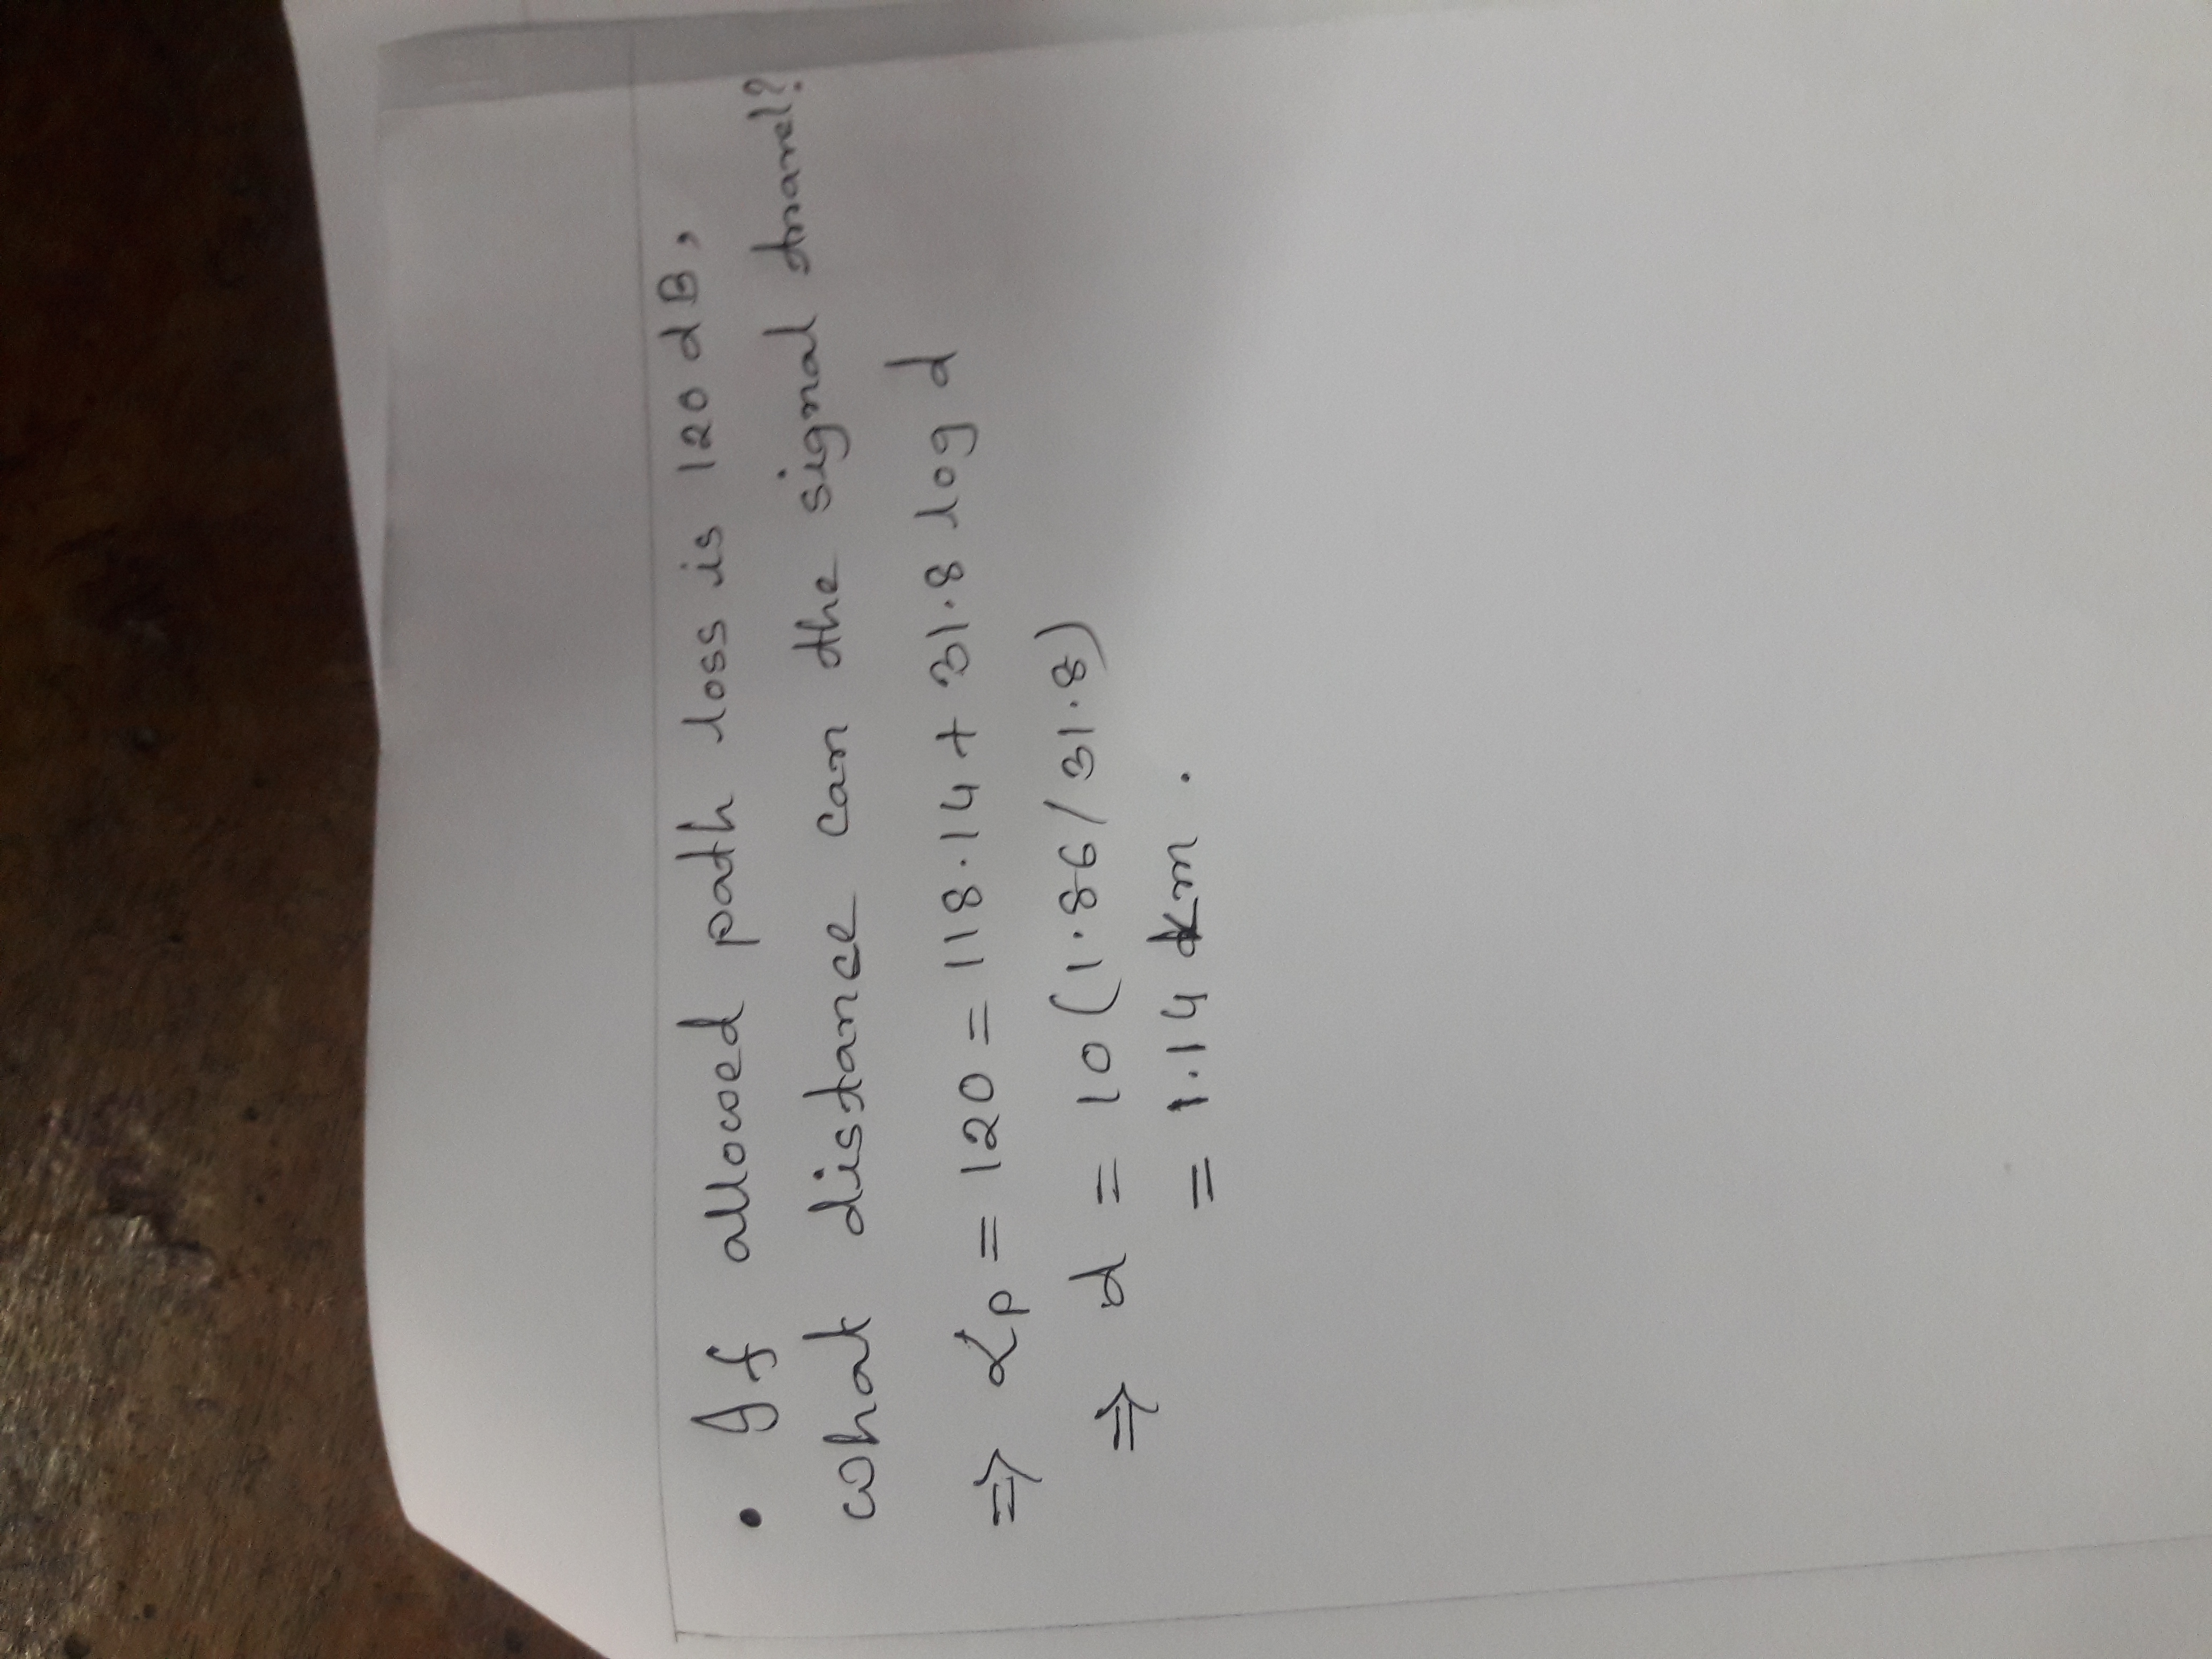 • If allowed path loss is 120 dB,
what distance can the signal travel?
⇒ Lp = 120 = 118.14 + 31.8 log d
⇒ d = 10(1.86/31.8)
= 1.14 km.